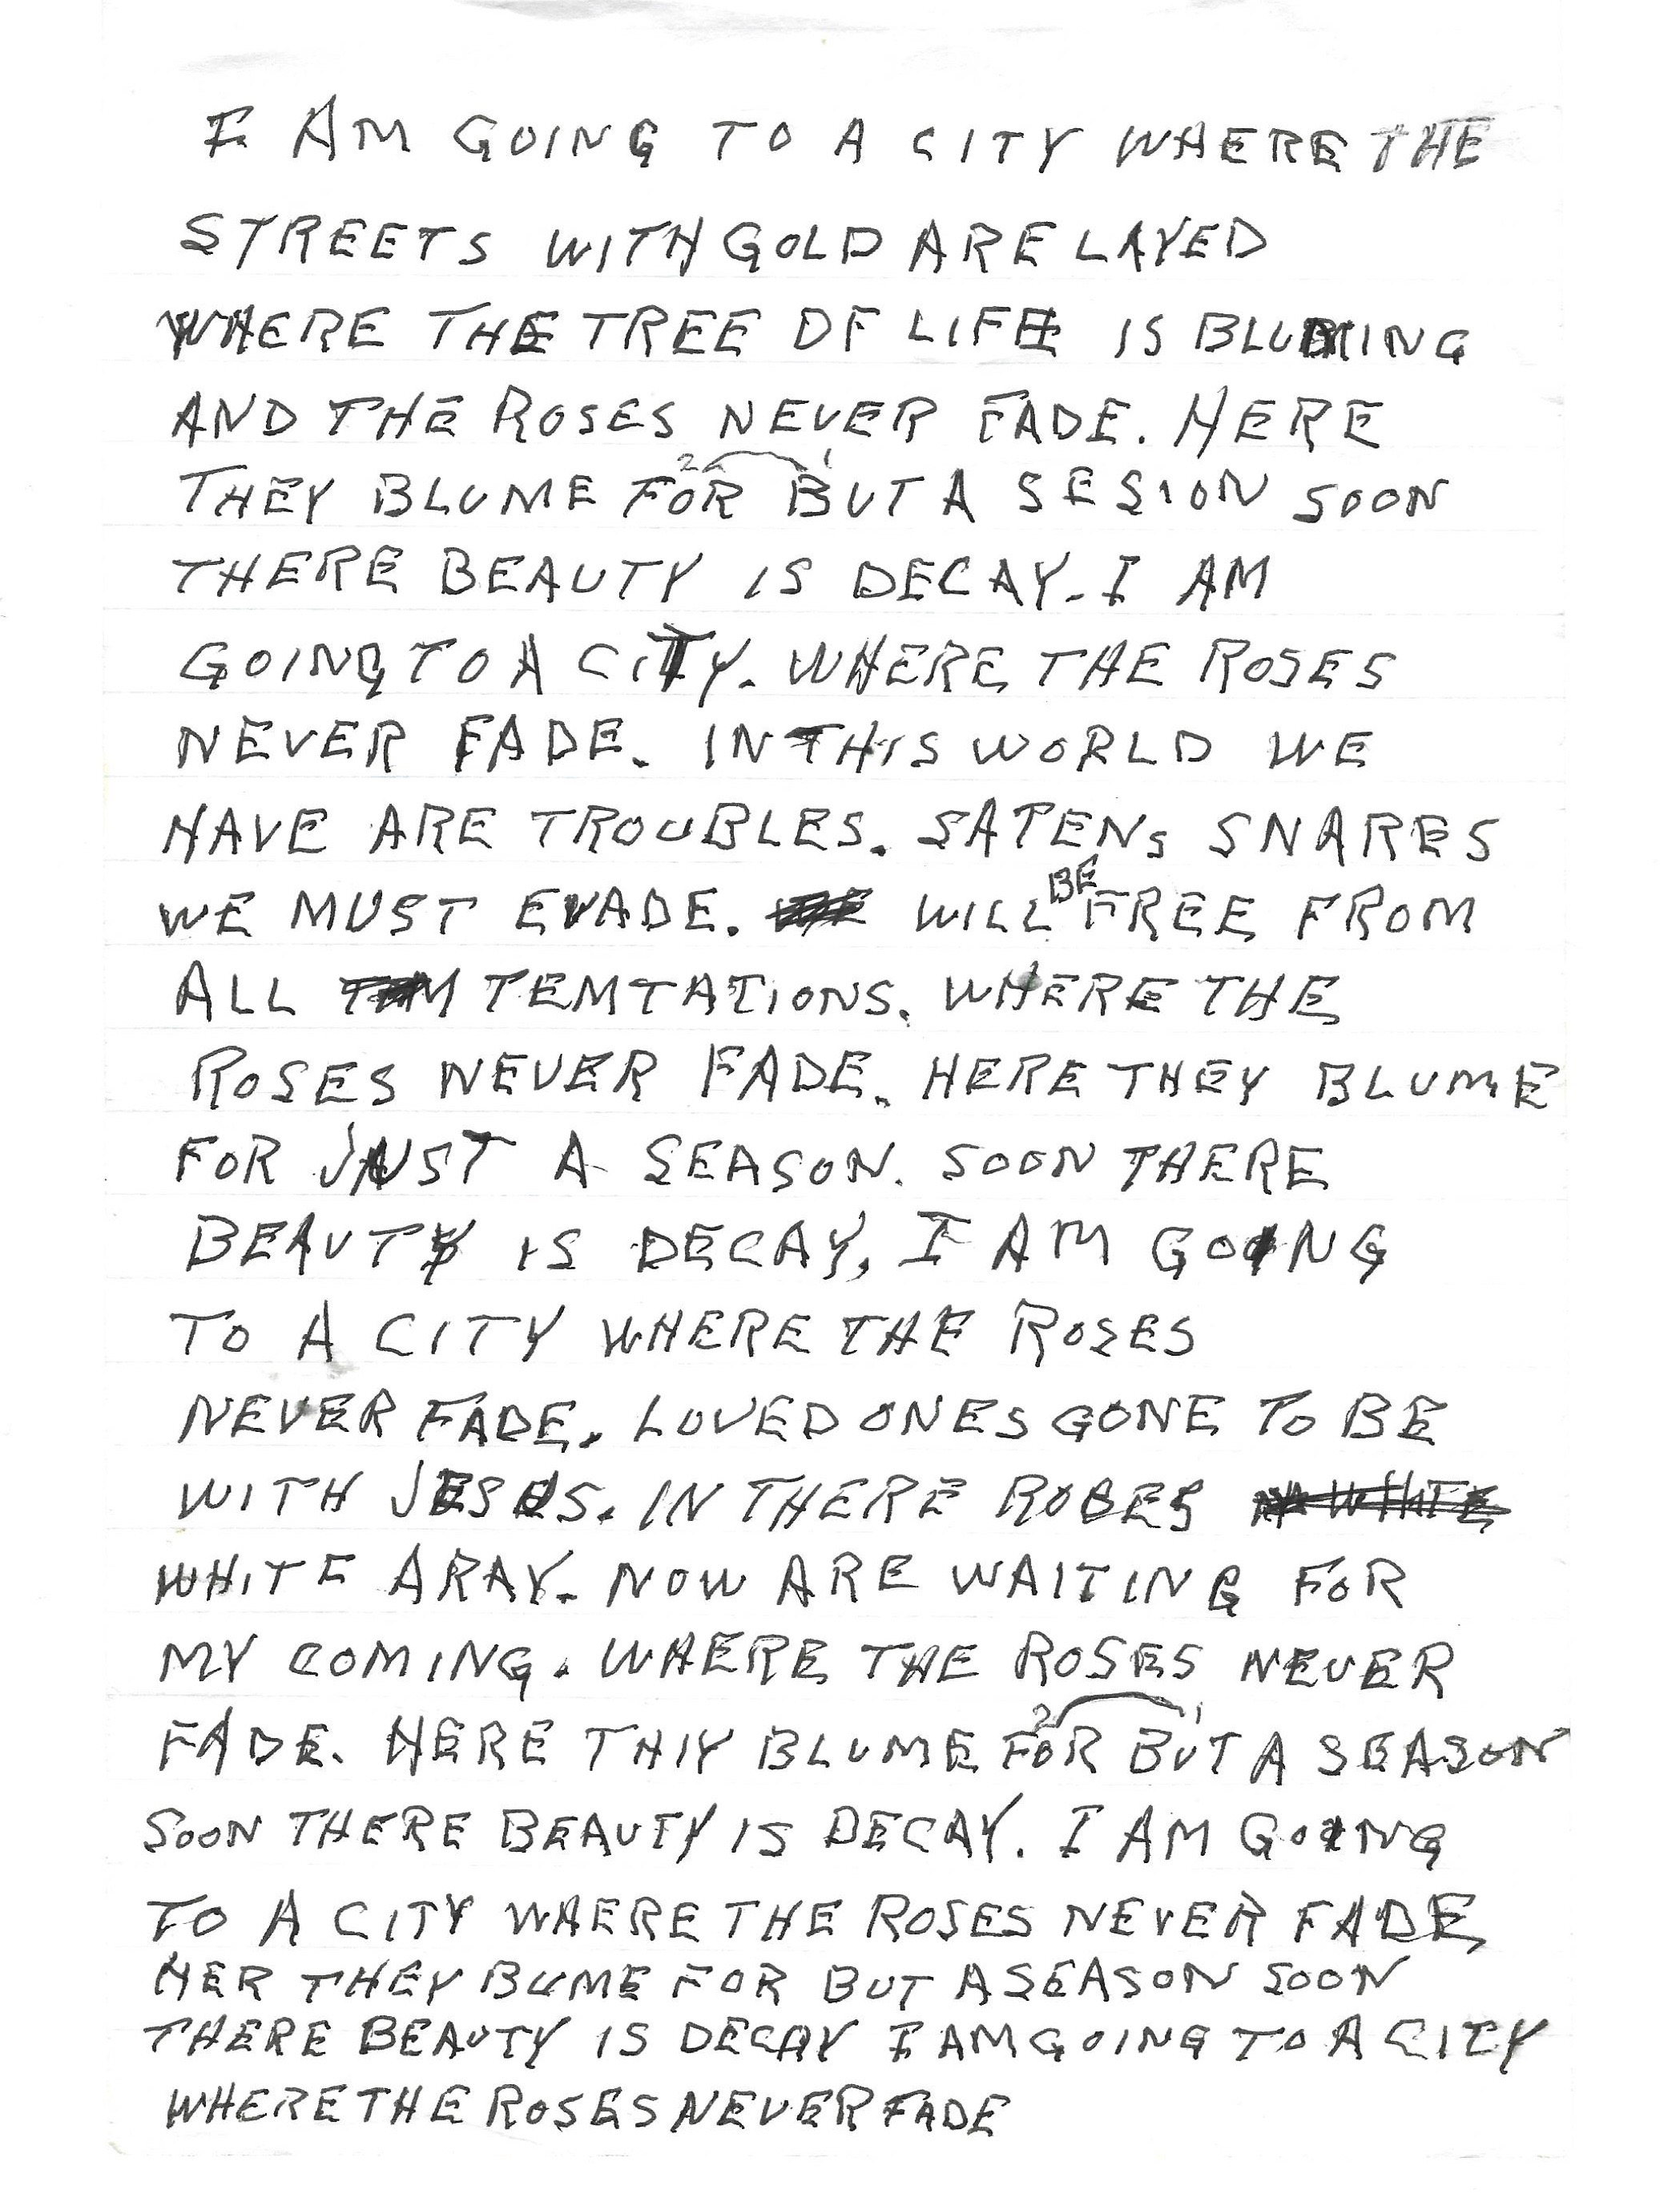 I AM GOING TO A CITY WHERE THE
STREETS WITH GOLD ARE LAYED
WHERE THE TREE OF LIFE IS BLUMING
AND THE ROSES NEVER FADE. HERE
THEY BLUME FOR BUT A SESION SOON
THERE BEAUTY IS DECAY. I AM
GOING TO A CITY. WHERE THE ROSES
NEVER FADE. IN THIS WORLD WE
HAVE ARE TROUBLES. SATENS SNARES
WE MUST EVADE. WILL BE FREE FROM
ALL TEMTATIONS. WHERE THE
ROSES NEVER FADE. HERE THEY BLUME
FOR JUST A SEASON. SOON THERE
BEAUTY IS DECAY, I AM GOING
TO A CITY WHERE THE ROSES
NEVER FADE. LOVED ONES GONE TO BE
WITH JESUS. IN THERE ROBES
WHITE ARAY. NOW ARE WAITING FOR
MY COMING. WHERE THE ROSES NEVER
FADE. HERE THIY BLUME FOR BUT A SEASON
SOON THERE BEAUTY IS DECAY. I AM GOING
TO A CITY WHERE THE ROSES NEVER FADE
HER THEY BUME FOR BUT A SEASON SOON
THERE BEAUTY IS DECAY I AM GOING TO A CITY
WHERE THE ROSES NEVER FADE